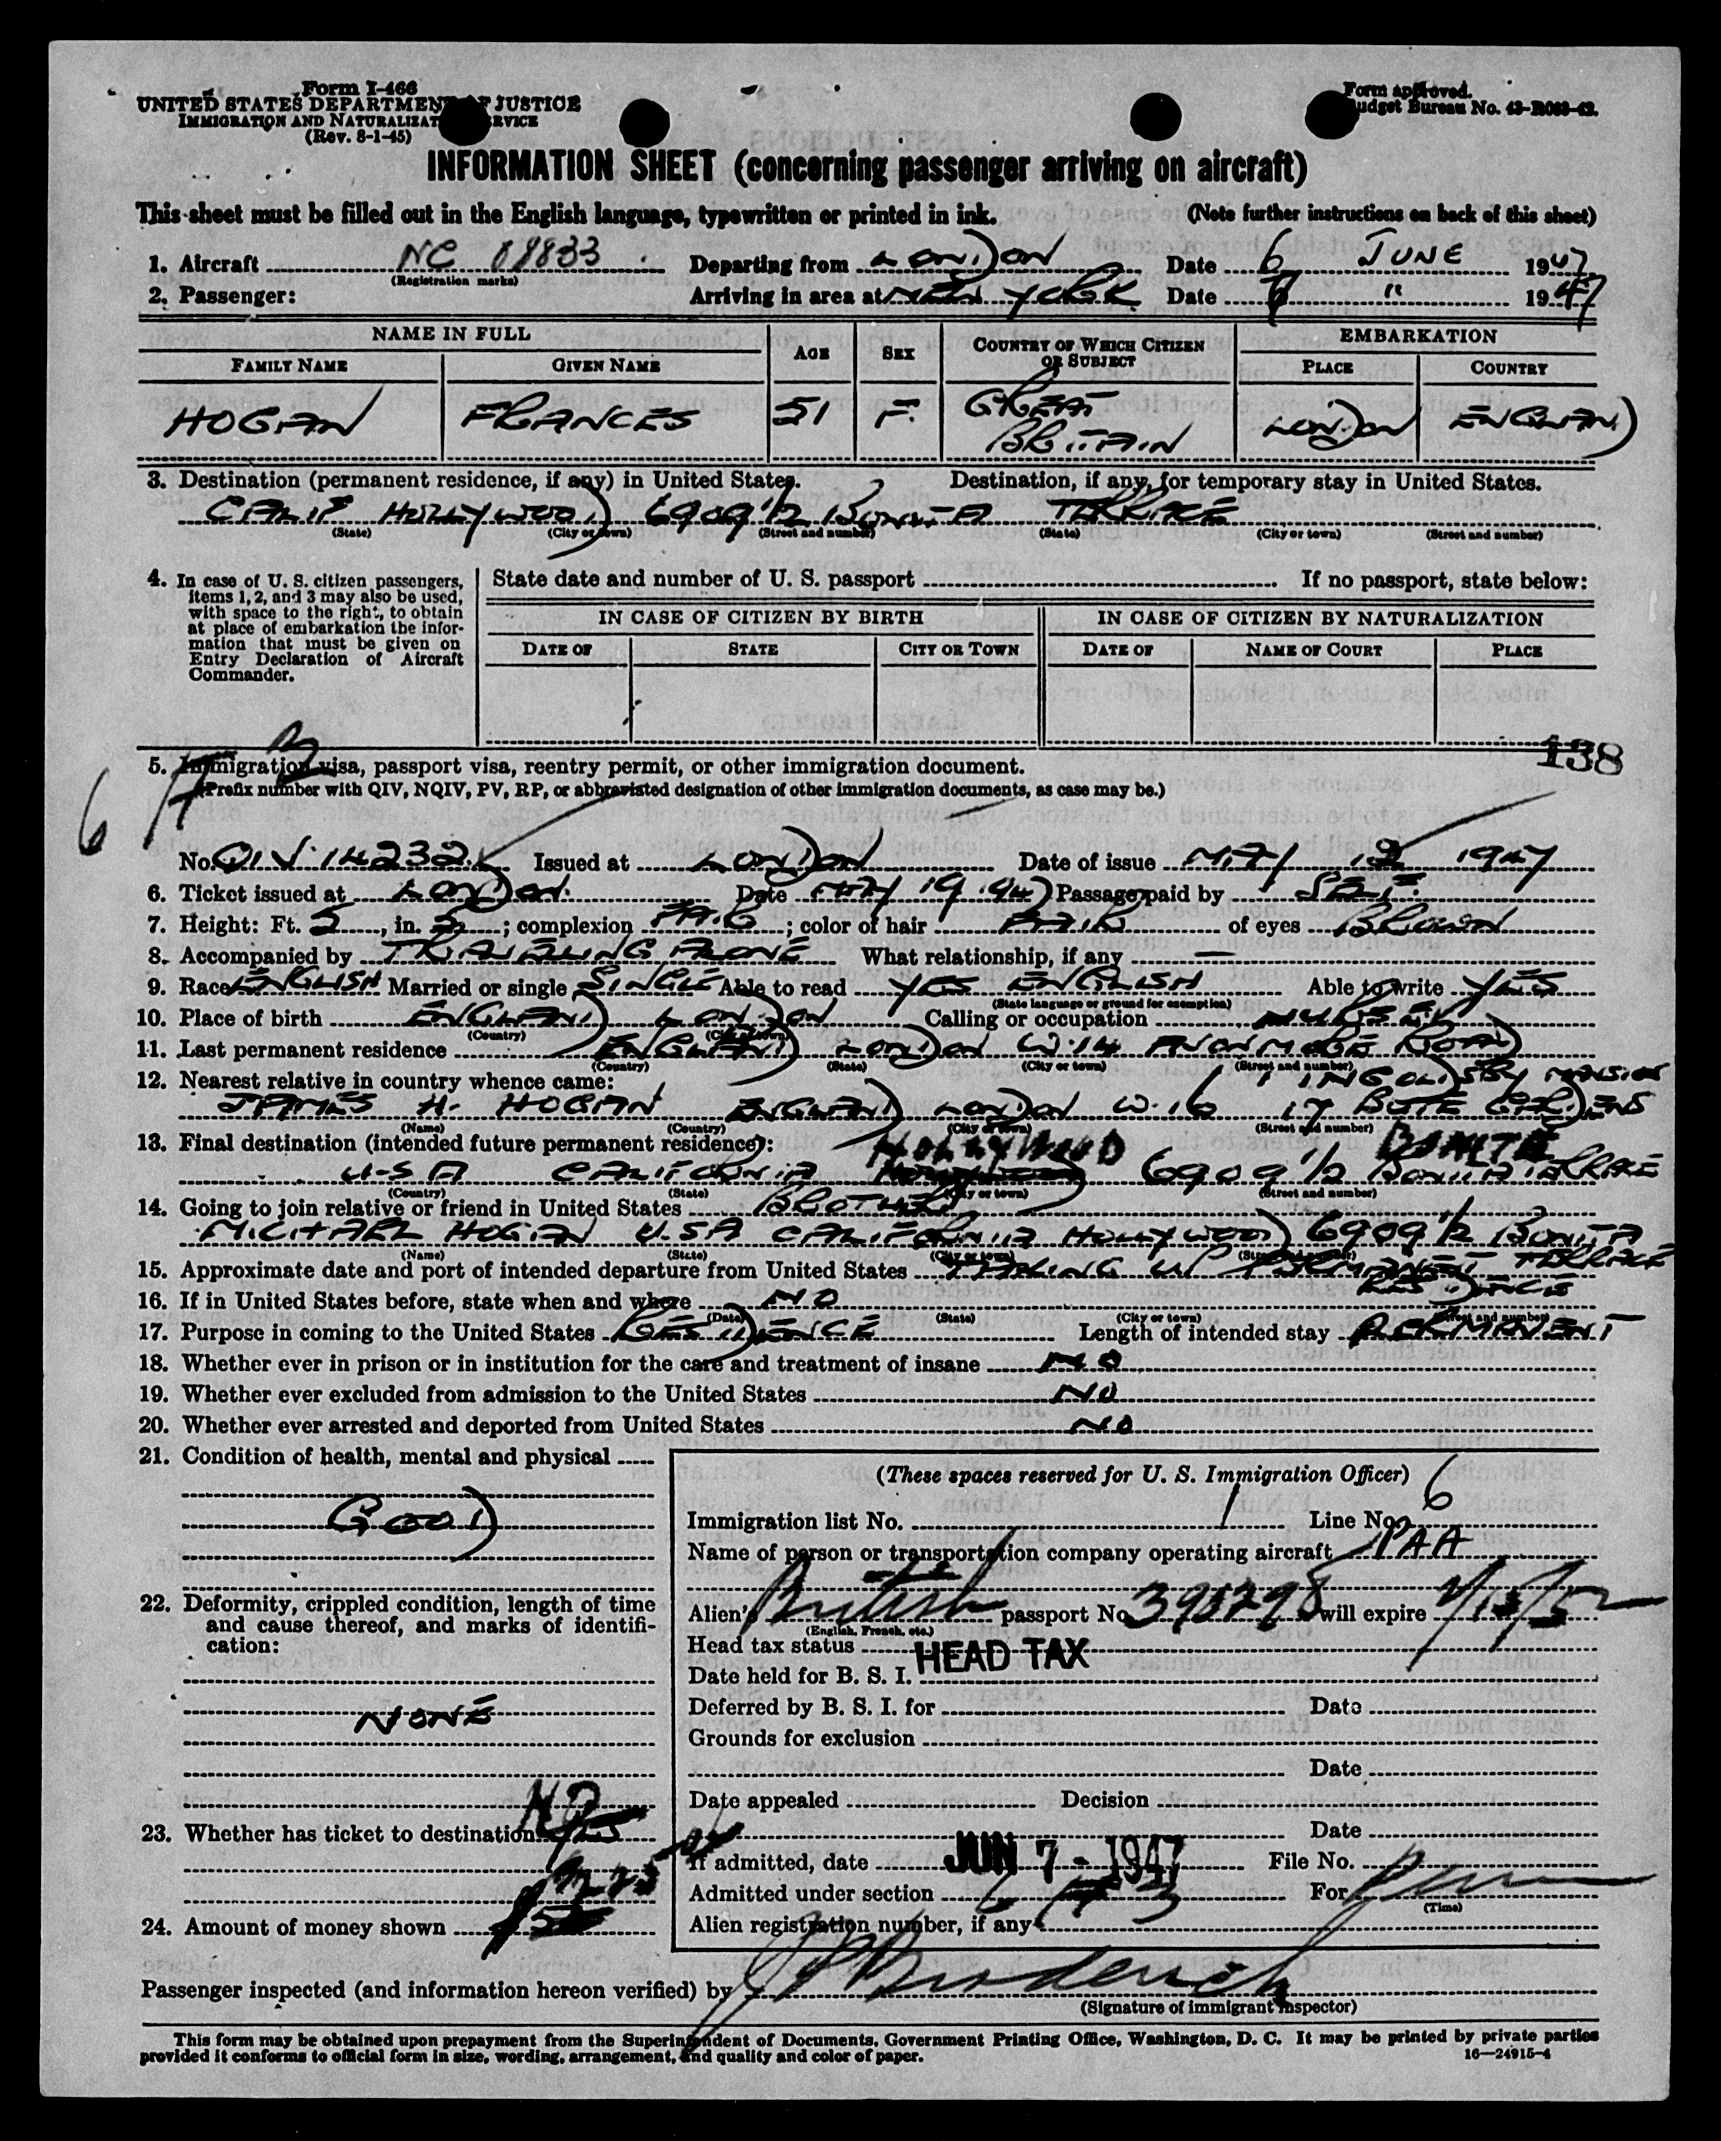 Form I-466
UNITED STATES DEPARTMENT OF JUSTICE
IMMIGRATION AND NATURALIZATION SERVICE
(Rev. 8-1-45)
Form approved.
Budget Bureau No. 43-R083-42.
INFORMATION SHEET (concerning passenger arriving on aircraft)
This sheet must be filled out in the English language, typewritten or printed in ink. (Note further instructions on back of this sheet)
1. Aircraft NC 88833 Departing from LONDON Date 6 JUNE 1947
(Registration marks)
2. Passenger: Arriving in area at NEW YORK Date 7 " 1947
NAME IN FULL AGE SEX COUNTRY OF WHICH CITIZEN OR SUBJECT EMBARKATION
FAMILY NAME GIVEN NAME PLACE COUNTRY
HOGAN FRANCES 51 F. GREAT BRITAIN LONDON ENGLAND
3. Destination (permanent residence, if any) in United States. Destination, if any, for temporary stay in United States.
CALIF HOLLYWOOD 6909 1/2 BONITA TERRACE
(State) (City or town) (Street and number) (State) (City or town) (Street and number)
4. In case of U. S. citizen passengers, items 1, 2, and 3 may also be used, with space to the right, to obtain at place of embarkation the information that must be given on Entry Declaration of Aircraft Commander.
State date and number of U. S. passport If no passport, state below:
IN CASE OF CITIZEN BY BIRTH IN CASE OF CITIZEN BY NATURALIZATION
DATE OF STATE CITY OR TOWN DATE OF NAME OF COURT PLACE
138
5. Immigration visa, passport visa, reentry permit, or other immigration document.
(Prefix number with QIV, NQIV, PV, RP, or abbreviated designation of other immigration documents, as case may be.)
6
No. QIV 14232 Issued at LONDON Date of issue MAY 1947
6. Ticket issued at LONDON Date MAY 19 1947 Passage paid by SELF
7. Height: Ft. 5, in. ; complexion FAIR; color of hair FAIR of eyes BROWN
8. Accompanied by TRAVELLING ALONE What relationship, if any —
9. Race ENGLISH Married or single SINGLE Able to read YES ENGLISH Able to write YES
(State language or ground for exemption)
10. Place of birth ENGLAND LONDON Calling or occupation
(Country) (City or town)
11. Last permanent residence ENGLAND LONDON W.14 AVONMORE ROAD
(Country) (State) (City or town) (Street and number)
12. Nearest relative in country whence came: INGOLDSBY MANSION
JAMES H. HOGAN ENGLAND LONDON W.16 17 BUTE GARDENS
(Name) (Country) (City or town) (Street and number)
13. Final destination (intended future permanent residence): HOLLYWOOD
U.S.A CALIFORNIA 6909 1/2 BONITA TERRACE
(Country) (State) (City or town) (Street and number)
14. Going to join relative or friend in United States BROTHER
MICHAEL HOGAN U.S.A CALIFORNIA HOLLYWOOD 6909 1/2 BONITA TERRACE
(Name) (State) (City or town) (Street and number)
15. Approximate date and port of intended departure from United States TAKING UP PERMANENT RESIDENCE
16. If in United States before, state when and where NO
(Date) (State) (City or town) (Street and number)
17. Purpose in coming to the United States RESIDENCE Length of intended stay PERMANENT
18. Whether ever in prison or in institution for the care and treatment of insane NO
19. Whether ever excluded from admission to the United States NO
20. Whether ever arrested and deported from United States NO
21. Condition of health, mental and physical
GOOD
22. Deformity, crippled condition, length of time and cause thereof, and marks of identification:
NONE
23. Whether has ticket to destination NO
24. Amount of money shown
(These spaces reserved for U. S. Immigration Officer)
Immigration list No. 1 Line No. 6
Name of person or transportation company operating aircraft PAA
Alien's British passport No. will expire
(English, French, etc.)
Head tax status HEAD TAX
Date held for B. S. I.
Deferred by B. S. I. for Date
Grounds for exclusion
Date
Date appealed Decision
Date
If admitted, date JUN 7 - 1947 File No.
Admitted under section 6 A 3 For Perm
(Time)
Alien registration number, if any
Passenger inspected (and information hereon verified) by Broderick
(Signature of immigrant inspector)
This form may be obtained upon prepayment from the Superintendent of Documents, Government Printing Office, Washington, D. C. It may be printed by private parties
provided it conforms to official form in size, wording, arrangement, and quality and color of paper. 16—24915-4